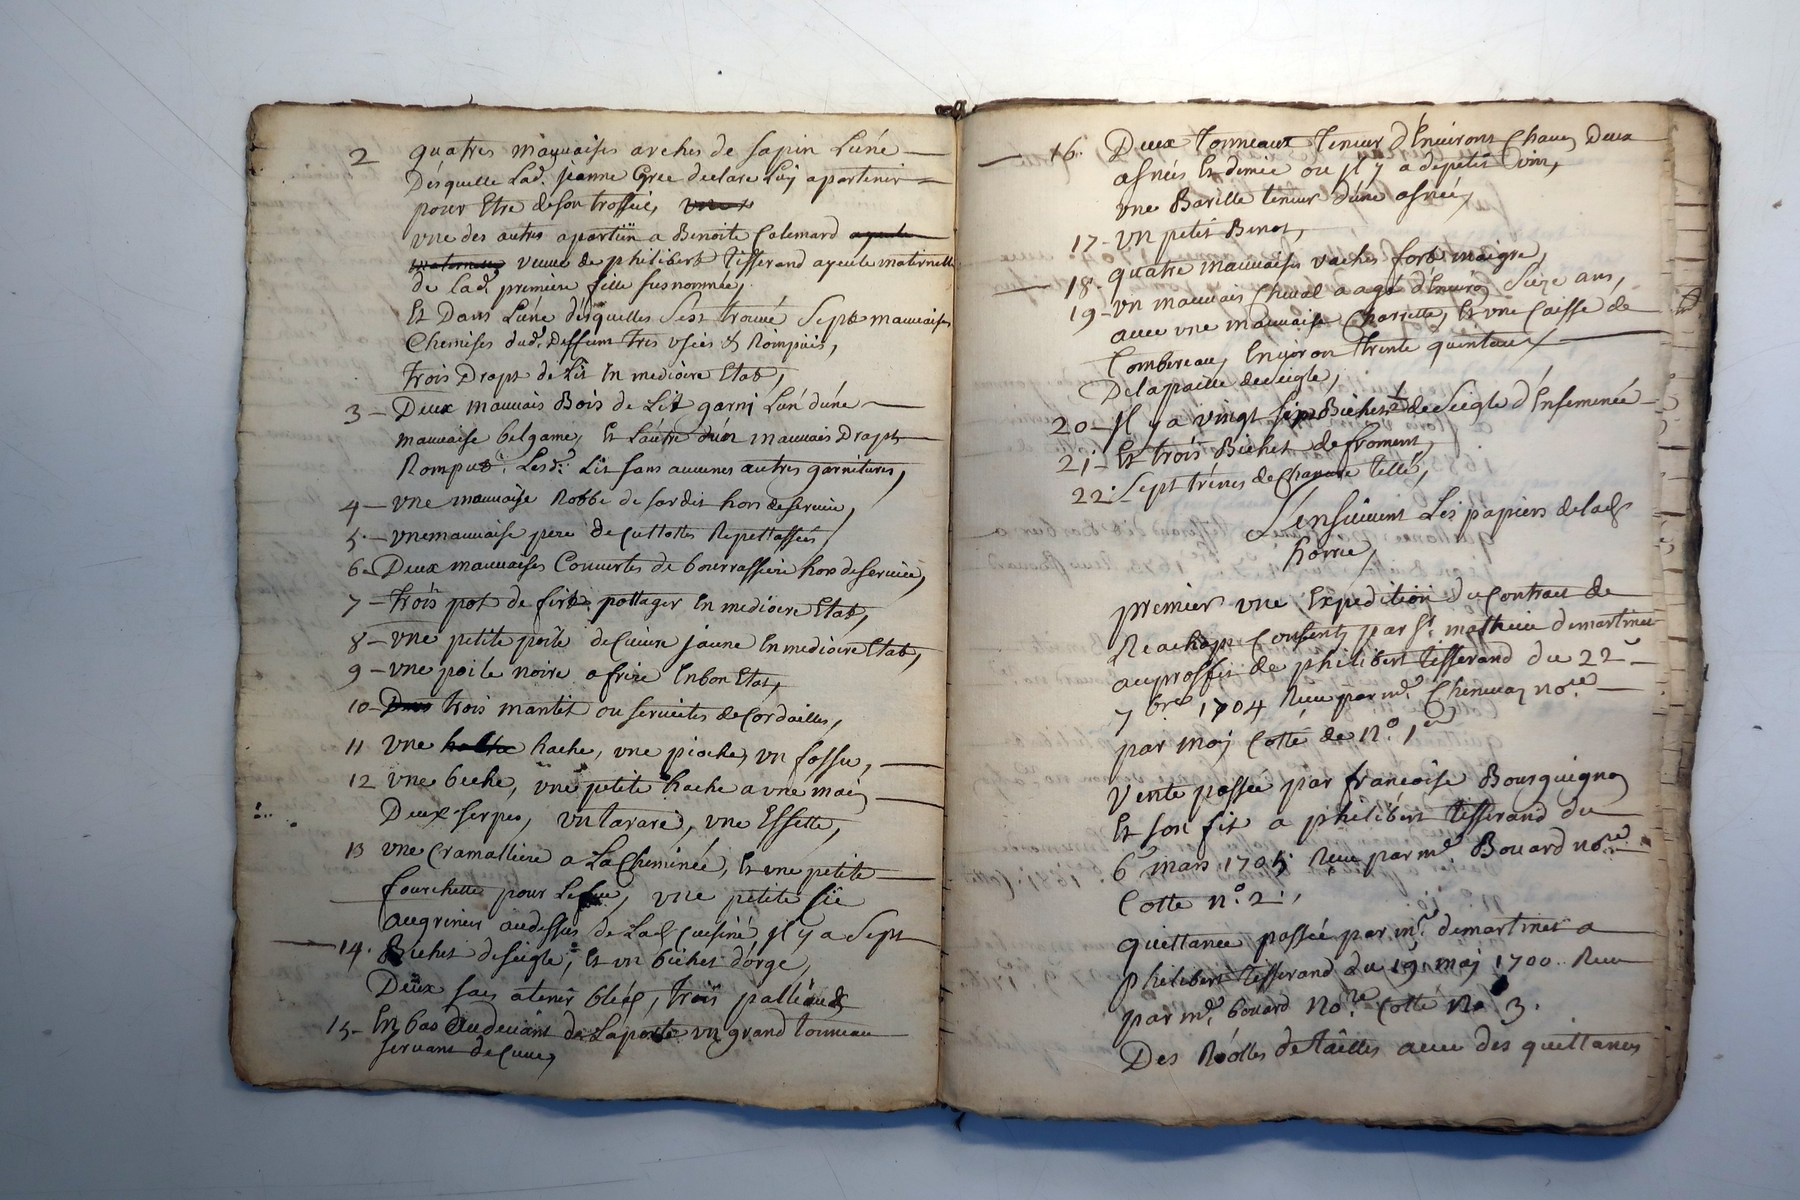 2 quatres mauvaises arches de sapin L'úne
Désquelle Lad. jeanne Gree declare Luy apartenir
pour Etre de son trossel,
vne des autres apartiin a Benoite Calemard
veuue de philibert tisserand ayeule maternelle
de Lad. premiere fille susnommée,
Et Dans L'úne désquelles sest trouué Sept mauuaises
Chemises dud. Deffunt tres vsées & Rompúes,
trois Draps de Lit En mediocre Etat,
3 - Deux mauuais Bois de Lit garni L'un d'úne
mauuaise belgame, Et L'aútre d'un mauuais Drapt
Rompus. Lesd. Lit sans aucunes autres garnitures,
4 - vne mauuaise Robbe de sardis hors de seruice,
5 - vne mauuaise pere de Cullottes Repettassées
6 - Deux mauuaises Couuertes de bourrassiere hors de seruice,
7 - trois pot de fert pottager En mediocre Etat,
8 - vne petite poile de Cuiure jaune En mediocre Etat,
9 - vne poile noire a frire En bon Etat,
10 - trois mantit ou seruietes de Cordailles,
11 vne hache, vne pioche, vn fossu,
12 vne beche, vne petite hache a vne main
Deux serpes, vn tarare, vne Essette,
13 vne Cramalliere a La Cheminée, Et vne petite
fourchette pour Le feu, vne petite sie
au grenier au dessus de Lad. Cuisiné jl y a Sept
14. Bichet de seigle, Et vn bichet d'orge,
Deux sacs a tenir bléd, trois
15 - En bas au deuant de La porte vn grand tonneau
seruant de Cuue,
16. Deux tonneaux teneur d'Enuirons Chacun Deux
asnées Et demie ou jl y a de petit vin,
vne Barille teneur d'une asnée,
17 - vn petit Benot,
18 - quatre mauuaises vaches fort maigre,
19 - vn mauuais Cheual aagé d'Enuiron Seize ans,
auec vne mauuaise Charrette, Et vne Caisse de
tombereau, Enuiron trente quintaux
De la paille de seigle,
20 - jl y a vingt sept Bichet ½ de Seigle d'Ensemencé
21 - Et trois Bichet de froment,
22 - Sept de Chanure tellé,
S'ensuiuent Les papiers de lad.
horrie,
premier vne Expedition du Contract de
Reachapt Consenty par Sr. mathieu demartinet
au proffit de philibert tisserand du 22
7bre 1704 Receu par me. Chenuay nore.
par moy Cotté de No. 1er
Vente passée par francoise Bourguignon
Et son fis a philibert tisserand du
6 mars 1705 Receu par me. Bouard nore.
Cotté No. 2.,
quittance passée par mr. demartinet a
philibert tisserand du 19 may 1700. Receu
par me. bouard Nore. Cotté No 3.
Des Roolles de tailles auec des quittances